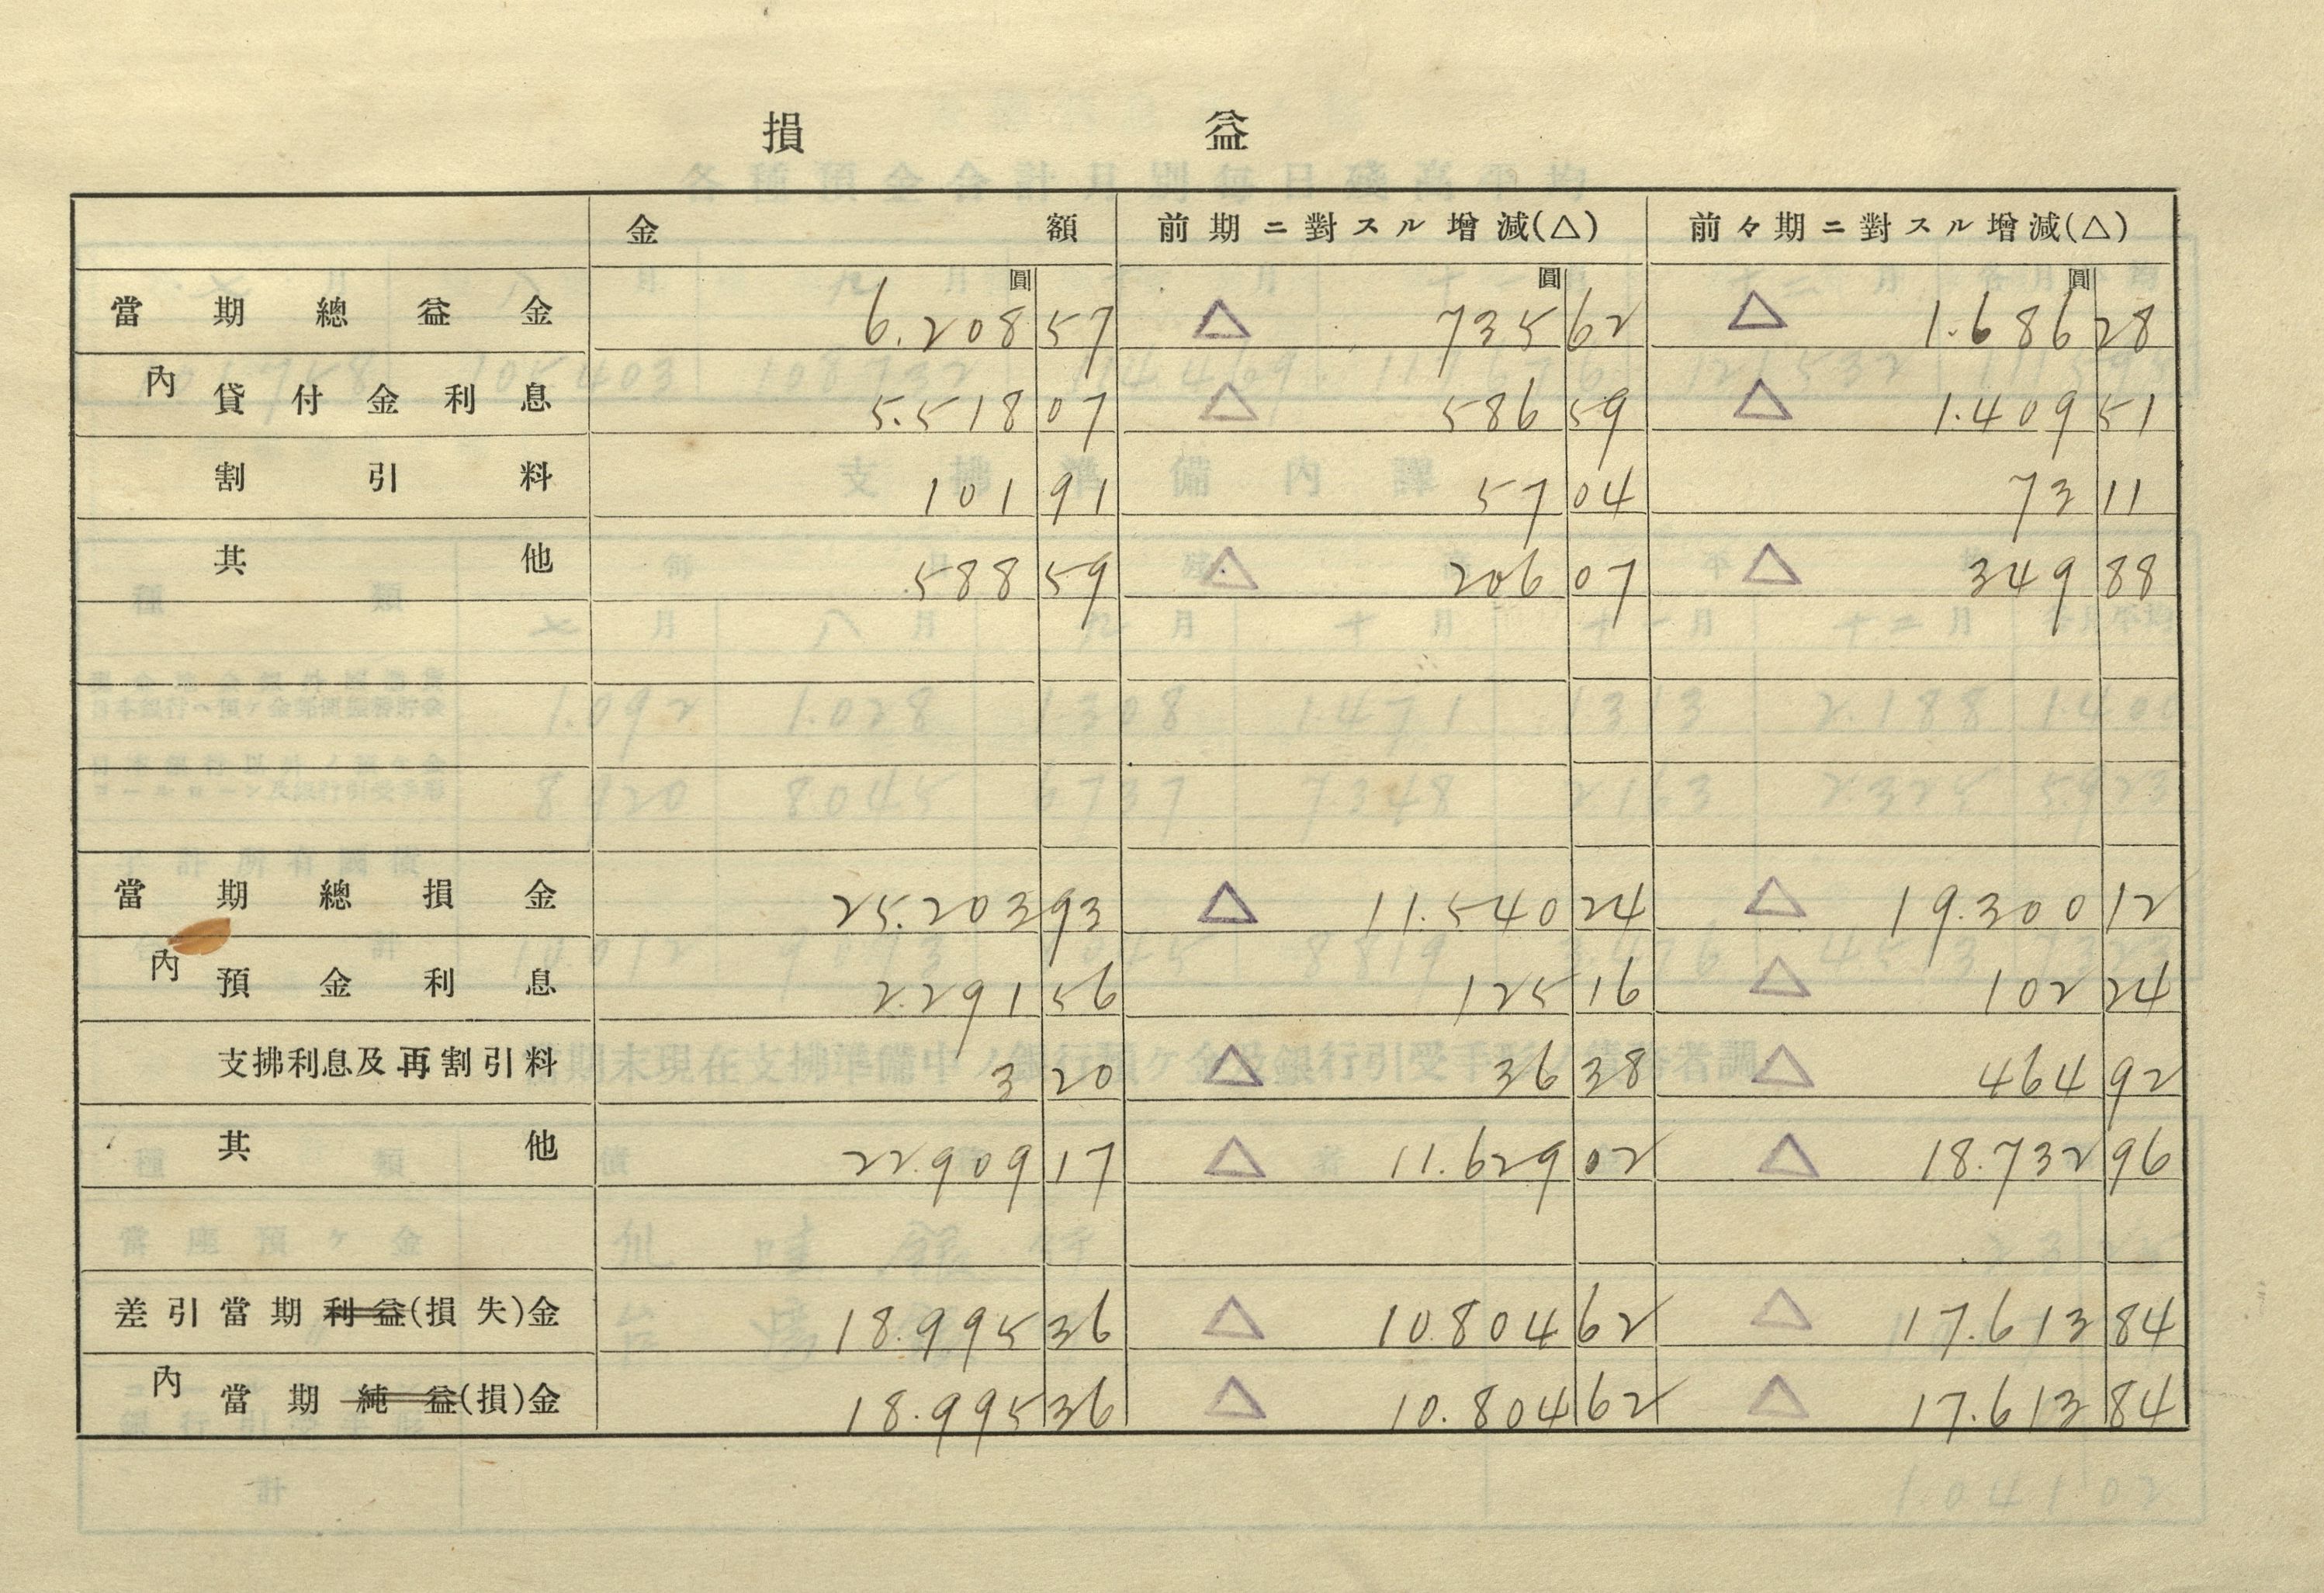 損益
金額 前期ニ對スル增減(△) 前々期ニ對スル增減(△)
圓 圓 圓
當期總益金 6.208 57 △ 735 62 △ 1.686 28
內 貸付金利息 5.518 07 △ 586 59 △ 1.409 51
割引料 101 91 57 04 73 11
其他 588 59 △ 206 07 △ 349 88
當期總損金 25.203 93 △ 11.540 24 △ 19.300 12
內 預金利息 2.291 56 125 16 △ 102 24
支拂利息及再割引料 3 20 △ 36 38 △ 464 92
其他 22.909 17 △ 11.629 02 △ 18.732 96
差引當期利益(損失)金 18.995 36 △ 10.804 62 △ 17.613 84
內 當期純益(損)金 18.995 36 △ 10.804 62 △ 17.613 84